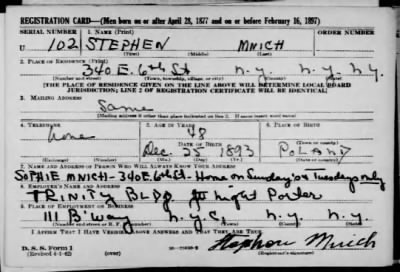 REGISTRATION CARD—(Men born on or after April 28, 1877 and on or before February 16, 1897)
SERIAL NUMBER 1. NAME (Print) ORDER NUMBER
U 1021 STEPHEN MNICH
(First) (Middle) (Last)
2. PLACE OF RESIDENCE (Print)
340 E. 6th St N.Y. N.Y. N.Y.
(Number and street) (Town, township, village, or city) (County) (State)
[THE PLACE OF RESIDENCE GIVEN ON THE LINE ABOVE WILL DETERMINE LOCAL BOARD
JURISDICTION; LINE 2 OF REGISTRATION CERTIFICATE WILL BE IDENTICAL]
3. MAILING ADDRESS
Same
[Mailing address if other than place indicated on line 2. If same insert word same]
4. TELEPHONE 5. AGE IN YEARS 6. PLACE OF BIRTH
none 48
DATE OF BIRTH
POLAND
(Town or county)
Dec. 25 1893
(Exchange) (Number) (Mo.) (Day) (Yr.) (State or country)
7. NAME AND ADDRESS OF PERSON WHO WILL ALWAYS KNOW YOUR ADDRESS
SOPHIE MNICH - 340 E. 6th St - Home on Sunday's & Tuesdays only
8. EMPLOYER'S NAME AND ADDRESS
TRINITY BLDG. Night Porter
9. PLACE OF EMPLOYMENT OR BUSINESS
111 B'way N.Y.C. N.Y. N.Y.
(Number and street or R. F. D. number) (Town) (County) (State)
I AFFIRM THAT I HAVE VERIFIED ABOVE ANSWERS AND THAT THEY ARE TRUE.
D. S. S. Form 1 Stephen Mnich
(Revised 4-1-42) (over) (Registrant's signature)